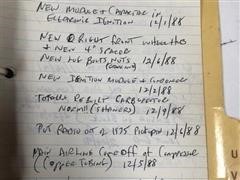 NEW MODULE + CAPACITOR in
ELECTRONIC IGNITION 12/1/88
NEW RIGHT FRONT
+ NEW 4" SPACER
NEW LUG BOLTS, NUTS 12/6/88
NEW IGNITION MODULE + CONDENSER
12/8/88
TOTALLY REBUILT CARBURETOR
NORM!! (STANDARD) 12/9/88
PUT RADIO OUT OF 1975 PICKUP 12/6/88
MAIN AIRLINE OFF AT COMPRESSOR
(COPPER TUBING) 12/5/88